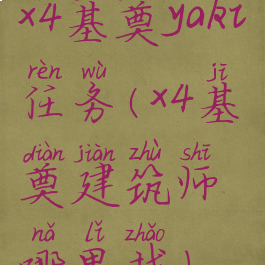 x4基奠yaki
rèn wù jī
任务(x4基
diàn jiàn zhù shī
奠建筑师
nǎ lǐ zhǎo
哪里找)